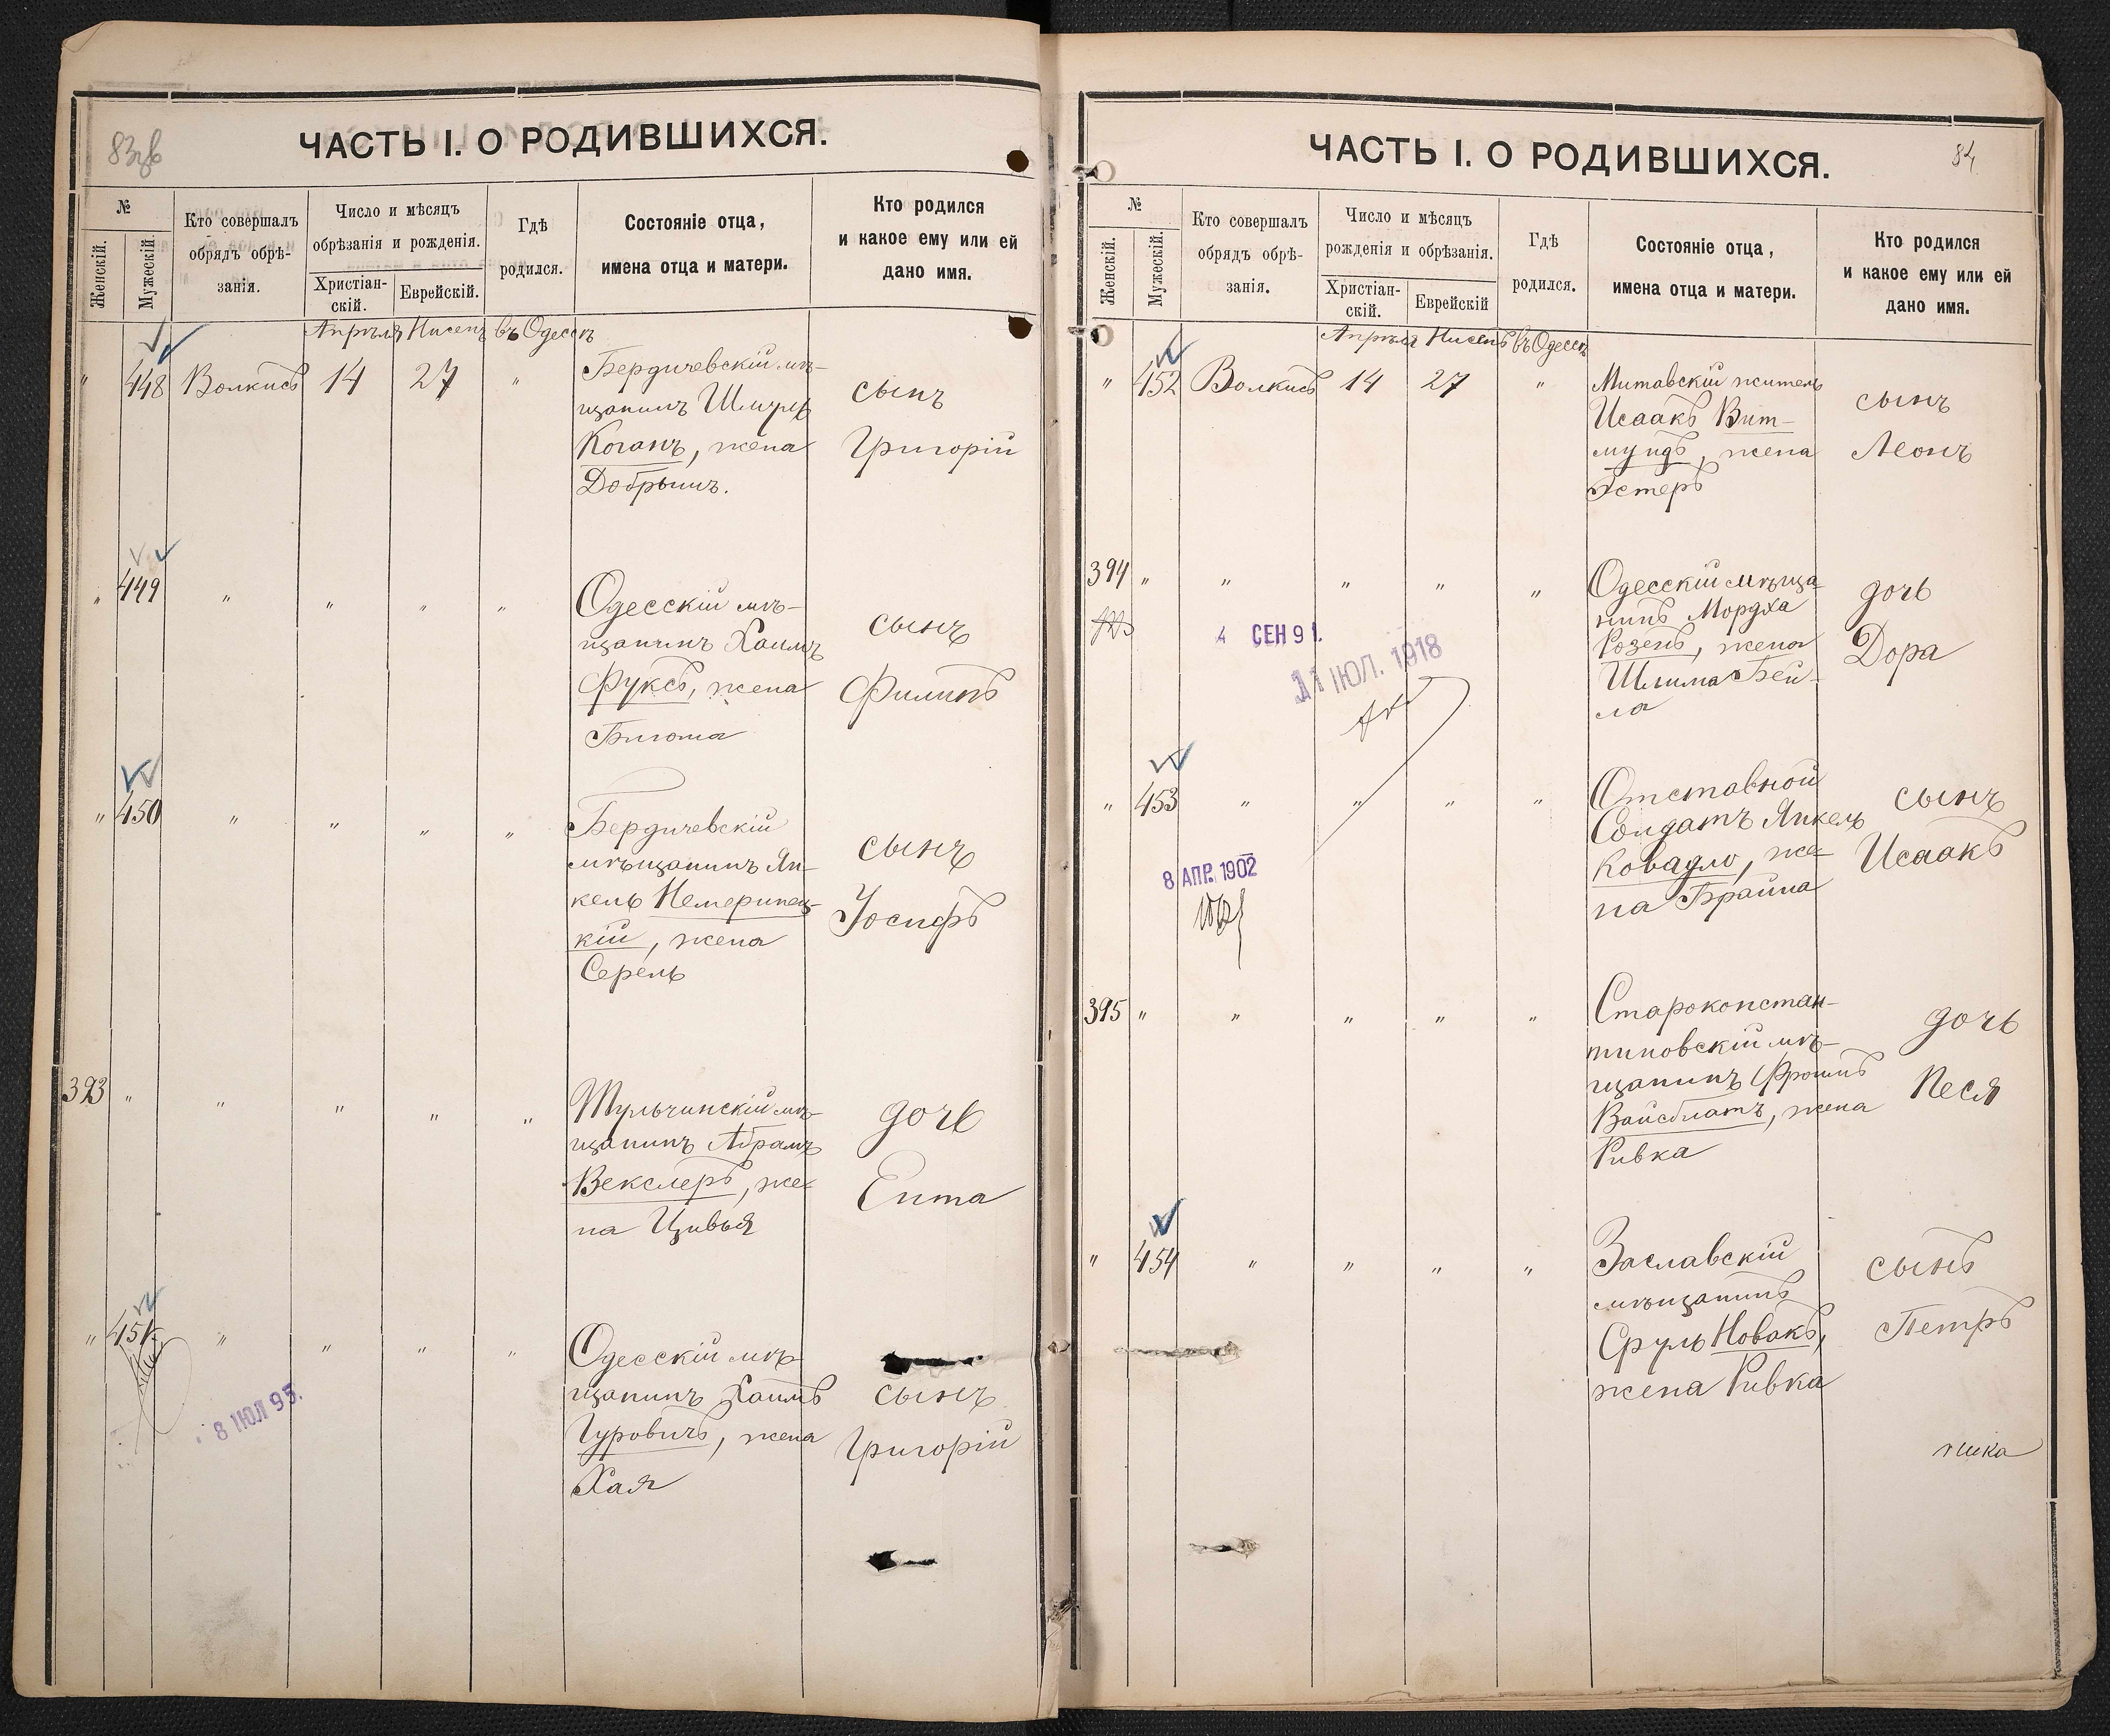 83об
ЧАСТЬ I. О РОДИВШИХСЯ.
№
Женскій.
Мужескій.
Кто совершалъ
обрядъ обрѣ-
занія.
Число и мѣсяцъ
обрѣзанія и рожденія.
Христіан-
скій.
Еврейскій.
Гдѣ
родился.
Состояніе отца,
имена отца и матери.
Кто родился
и какое ему или ей
дано имя.
Апрѣля Нисенъ въ Одессѣ
" 448 Волкисъ 14 27 "
Бердичевскій мѣ-
щанинъ Шмуль
Коганъ, жена
Добрышъ.
сынъ
Григорій
" 449 " " " "
Одесскій мѣ-
щанинъ Хаимъ
Фуксъ, жена
сынъ
Филипъ
" 450 " " " "
Бердичевскій
мѣщанинъ Ян-
кель Немеринец-
кій, жена
Серель
сынъ
Іосифъ
393 " " " " "
Тульчинскій мѣ-
щанинъ Абрамъ
Векслеръ, же-
на Цивья
дочь
Ента
" 451 " " " "
8 ІЮЛ 95.
Одесскій мѣ-
щанинъ Хаимъ
Гуровичъ, жена
Хая
сынъ
Григорій
84
ЧАСТЬ I. О РОДИВШИХСЯ.
№
Женскій.
Мужескій.
Кто совершалъ
обрядъ обрѣ-
занія.
Число и мѣсяцъ
рожденія и обрѣзанія.
Христіан-
скій.
Еврейскій
Гдѣ
родился.
Состояніе отца,
имена отца и матери.
Кто родился
и какое ему или ей
дано имя.
Апрѣля Нисенъ въ Одессѣ
" 452 Волкисъ 14 27 "
Митавскій житель
Исаакъ Вит-
мундъ, жена
Эстеръ
сынъ
Леонъ
394 " " " " "
4 СЕН 91.
11 ІЮЛ. 1918
Одесскій мѣща-
нинъ Мордха
Розенъ, жена
Шлима Бей-
ла
дочь
Дора
" 453 " " " "
8 АПР. 1902
Отставной
Солдатъ Янкель
Ковадло, же-
на Брайна
сынъ
Исаакъ
395 " " " " "
Староконстан-
тиновскій мѣ-
щанинъ Фроимъ
Вайсблатъ, жена
Ривка
дочь
Песя
" 454 " " " "
Заславскій
мѣщанинъ
Сруль Новакъ,
жена Ривка
сынъ
Петръ